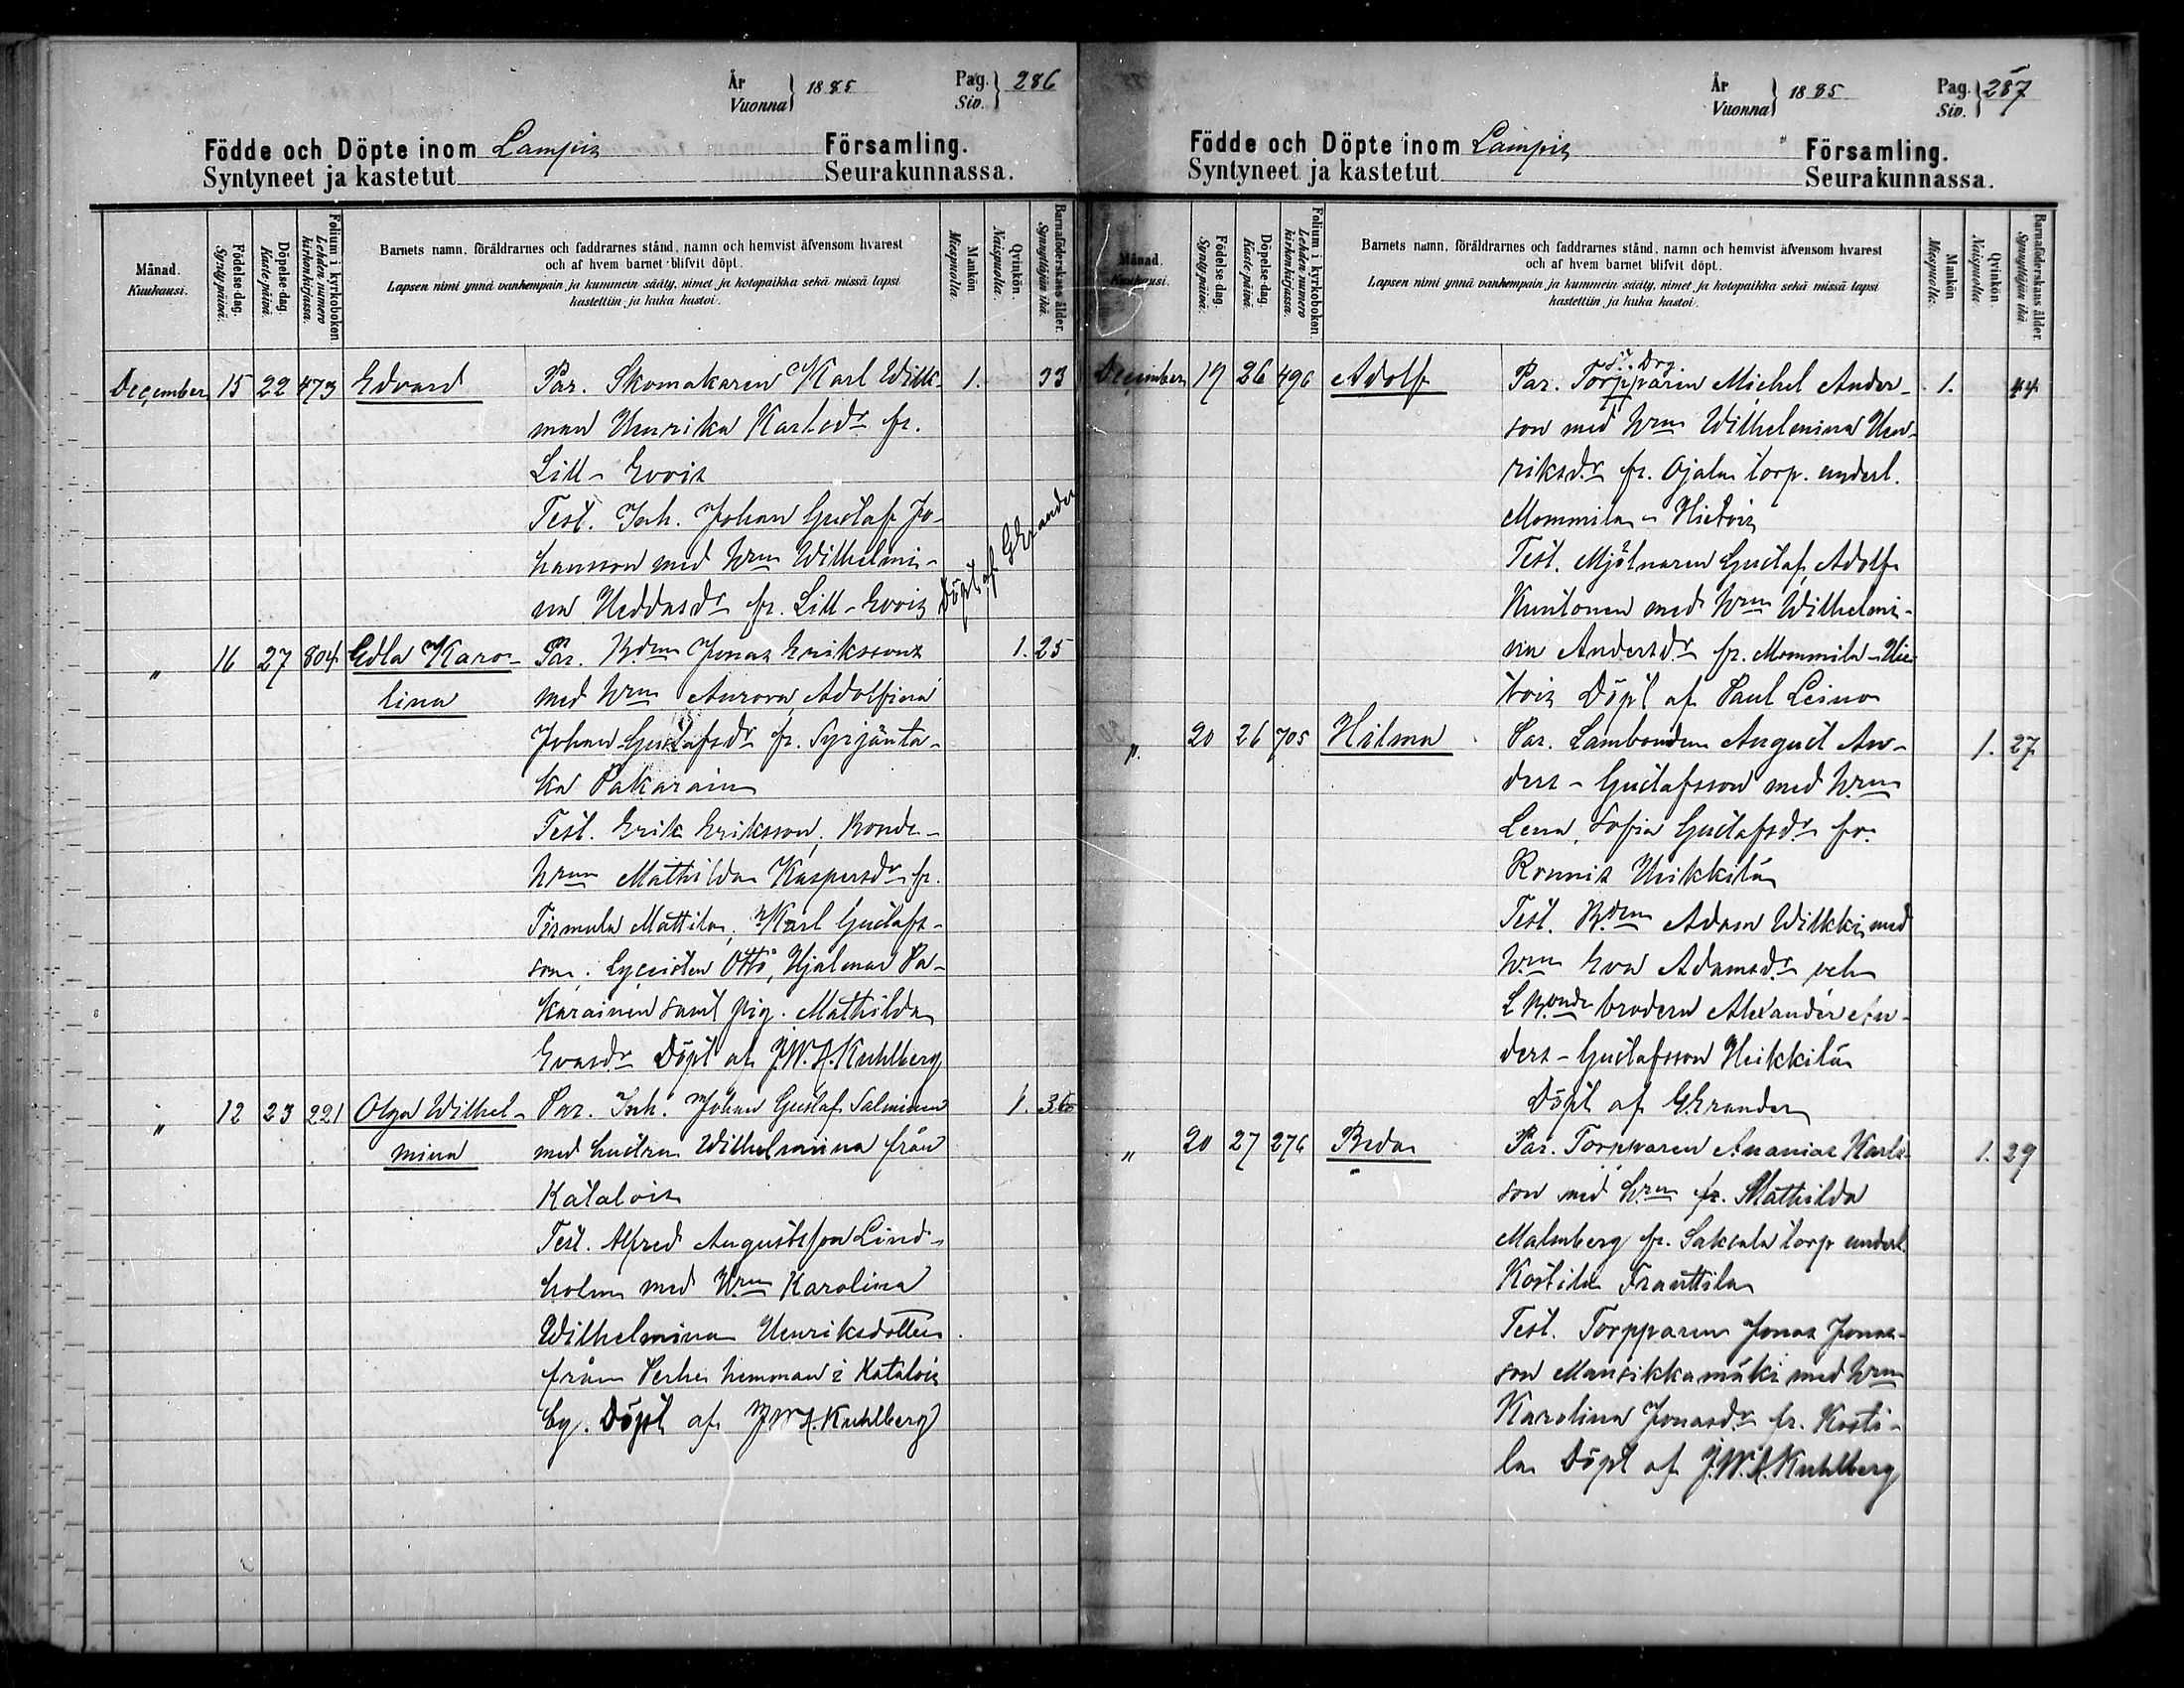 År
Vuonna } 1885
Pag.
Siv. } 286
Födde och Döpte inom Lampis Församling.
Syntyneet ja kastetut Seurakunnassa.
Månad.
Kuukausi.
Födelse-dag.
Syntypäivä.
Döpelse-dag.
Kaste-päivä.
Folium i kyrkoboken.
Lehden numero kirkonkirjassa.
Barnets namn, föräldrarnes och faddrarnes stånd, namn och hemvist äfvensom hvarest
och af hvem barnet blifvit döpt.
Lapsen nimi ynnä vanhempain ja kummein sääty, nimet ja kotopaikka sekä missä lapsi
kastettiin ja kuka kastoi.
Mankön
Miespuolia.
Qvinkön.
Naispuolia.
Barnaföderskans ålder.
Synnyttäjän ikä.
December 15 22 473 Edvard Par. Skomakaren Karl Willk- 1. 33
man Henrika Karlsdr fr.
Lill-Evois
Test. Inh. Johan Gustaf Jo-
hansson med hrun Wilhelmi-
na Heddasdr fr. Lill-Evois Döpt af GEkrander
" 16 27 804 Edla Karo- Par. Bdem Jonas Erikssons 1. 25
lina med hrun Aurora Adolfina
Johan Gustafsdr fr. Syrjänta-
ka Pakarain
Test. Erik Eriksson, Bonde-
hrun Mathilda Kaspersdr fr.
Tirmula Mattila, Karl Gustafs-
son, Lyceisten Otto Hjalmar Pa-
karainen samt pig. Mathilda
Evasdr Döpt af J.W.A. Kuhlberg
" 12 23 221 Olga Wilhel- Par. Inh. Johan Gustaf Salminen 1. 36
mina med hustru Wilhelmina från
Katalois
Test. Alfred Augustsson Lind-
holm med Hrun Karolina
Wilhelmina Henriksdotter
från Perhe hemman i Katalois
by. Döpt af J.W.A. Kuhlberg
År
Vuonna } 1885
Pag.
Siv. } 287
Födde och Döpte inom Lampis Församling.
Syntyneet ja kastetut Seurakunnassa.
Månad.
Kuukausi.
Födelse-dag.
Syntypäivä.
Döpelse-dag.
Kaste-päivä.
Folium i kyrkoboken.
Lehden numero kirkonkirjassa.
Barnets namn, föräldrarnes och faddrarnes stånd, namn och hemvist äfvensom hvarest
och af hvem barnet blifvit döpt.
Lapsen nimi ynnä vanhempain ja kummein sääty, nimet ja kotopaikka sekä missä lapsi
kastettiin ja kuka kastoi.
Mankön
Miespuolia.
Qvinkön.
Naispuolia.
Barnaföderskans ålder.
Synnyttäjän ikä.
December 19 26 496 Adolf Par. Torpparen Michel Ander- 1. 44
son med hrun Wilhelmina Hen-
riksdr fr. Ojala torp. underl.
Mommila-Hietois
Test. Mjölnaren Gustaf Adolf
Kuntonen med hrun Wilhelmi-
na Andersdr fr. Mommila-Hie-
tois Döpt af Paul Leino
" 20 26 705 Hilma Par. Lambonden August An- 1. 27
ders-Gustafsson med hrun
Lena Sofia Gustafsdr fr.
Ronnis Heikkilä
Test. Bdem Adam Wilkki med
hrun Eva Adamsdr och
L Bonde brodern Alexander An-
ders-Gustafsson Heikkilä
Döpt af GEkrander
" 20 27 276 Beda Par. Torpparen Ananias Karls- 1. 29
son med hrun fr. Mathilda
Malmberg fr. Saksala torp underl.
Kostila Franttila
Test. Torpparen Jonas Jonas-
son Mansikkamäki med hrun
Karolina Jonasdr fr. Kosti-
la Döpt af J.W.A. Kuhlberg